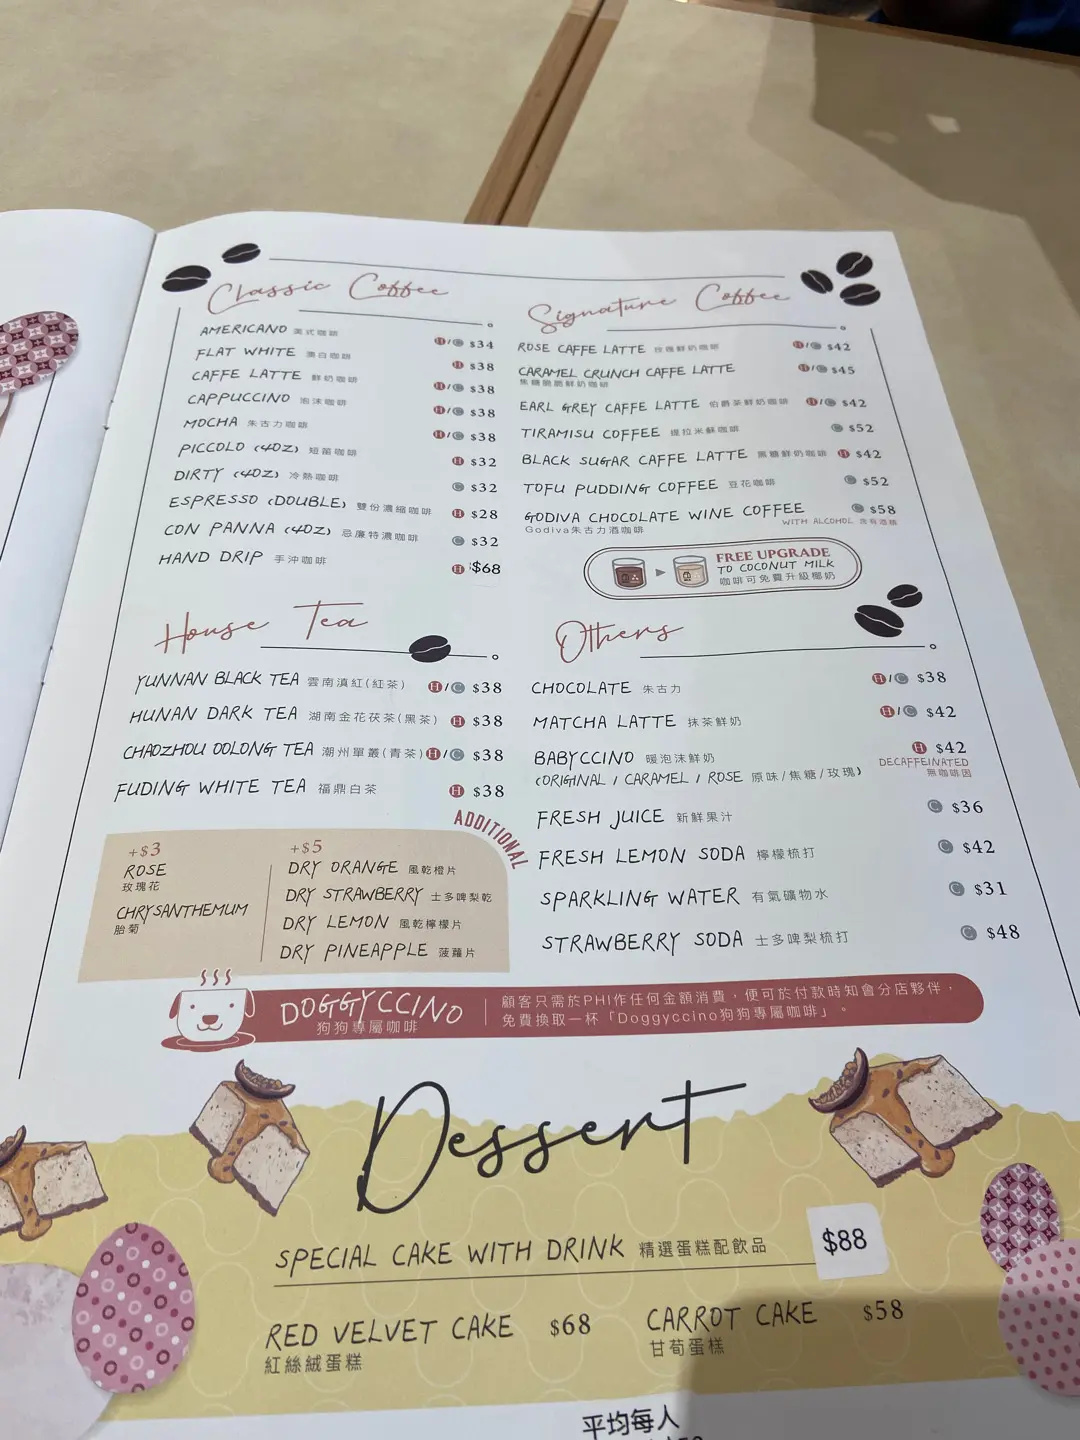 Classic Coffee
AMERICANO 美式咖啡 H/C $34
FLAT WHITE 澳白咖啡 H $38
CAFFE LATTE 鮮奶咖啡 H/C $38
CAPPUCCINO 泡沫咖啡 H/C $38
MOCHA 朱古力咖啡 H/C $38
PICCOLO (4OZ) 短笛咖啡 H $32
DIRTY (4OZ) 冷熱咖啡 C $32
ESPRESSO (DOUBLE) 雙份濃縮咖啡 H $28
CON PANNA (4OZ) 忌廉特濃咖啡 C $32
HAND DRIP 手沖咖啡 H $68
Signature Coffee
ROSE CAFFE LATTE 玫瑰鮮奶咖啡 H/C $42
CARAMEL CRUNCH CAFFE LATTE H/C $45
焦糖脆脆鮮奶咖啡
EARL GREY CAFFE LATTE 伯爵茶鮮奶咖啡 H/C $42
TIRAMISU COFFEE 提拉米蘇咖啡 C $52
BLACK SUGAR CAFFE LATTE 黑糖鮮奶咖啡 H $42
TOFU PUDDING COFFEE 豆花咖啡 C $52
GODIVA CHOCOLATE WINE COFFEE C $58
Godiva朱古力酒咖啡 WITH ALCOHOL 含有酒精
FREE UPGRADE
TO COCONUT MILK
咖啡可免費升級椰奶
House Tea
YUNNAN BLACK TEA 雲南滇紅(紅茶) H/C $38
HUNAN DARK TEA 湖南金花茯茶(黑茶) H $38
CHAOZHOU OOLONG TEA 潮州單叢(青茶) H/C $38
FUDING WHITE TEA 福鼎白茶 H $38
ADDITIONAL
+$3
ROSE
玫瑰花
CHRYSANTHEMUM
胎菊
+$5
DRY ORANGE 風乾橙片
DRY STRAWBERRY 士多啤梨乾
DRY LEMON 風乾檸檬片
DRY PINEAPPLE 菠蘿片
Others
CHOCOLATE 朱古力 H/C $38
MATCHA LATTE 抹茶鮮奶 H/C $42
BABYCCINO 暖泡沫鮮奶 H $42
(ORIGINAL / CARAMEL / ROSE 原味/焦糖/玫瑰) DECAFFEINATED
無咖啡因
FRESH JUICE 新鮮果汁 C $36
FRESH LEMON SODA 檸檬梳打 C $42
SPARKLING WATER 有氣礦物水 C $31
STRAWBERRY SODA 士多啤梨梳打 C $48
DOGGYCCINO
狗狗專屬咖啡
顧客只需於PHI作任何金額消費，便可於付款時知會分店夥伴，
免費換取一杯「Doggyccino狗狗專屬咖啡」。
Dessert
SPECIAL CAKE WITH DRINK 精選蛋糕配飲品 $88
RED VELVET CAKE $68
紅絲絨蛋糕
CARROT CAKE $58
甘荀蛋糕
平均每人